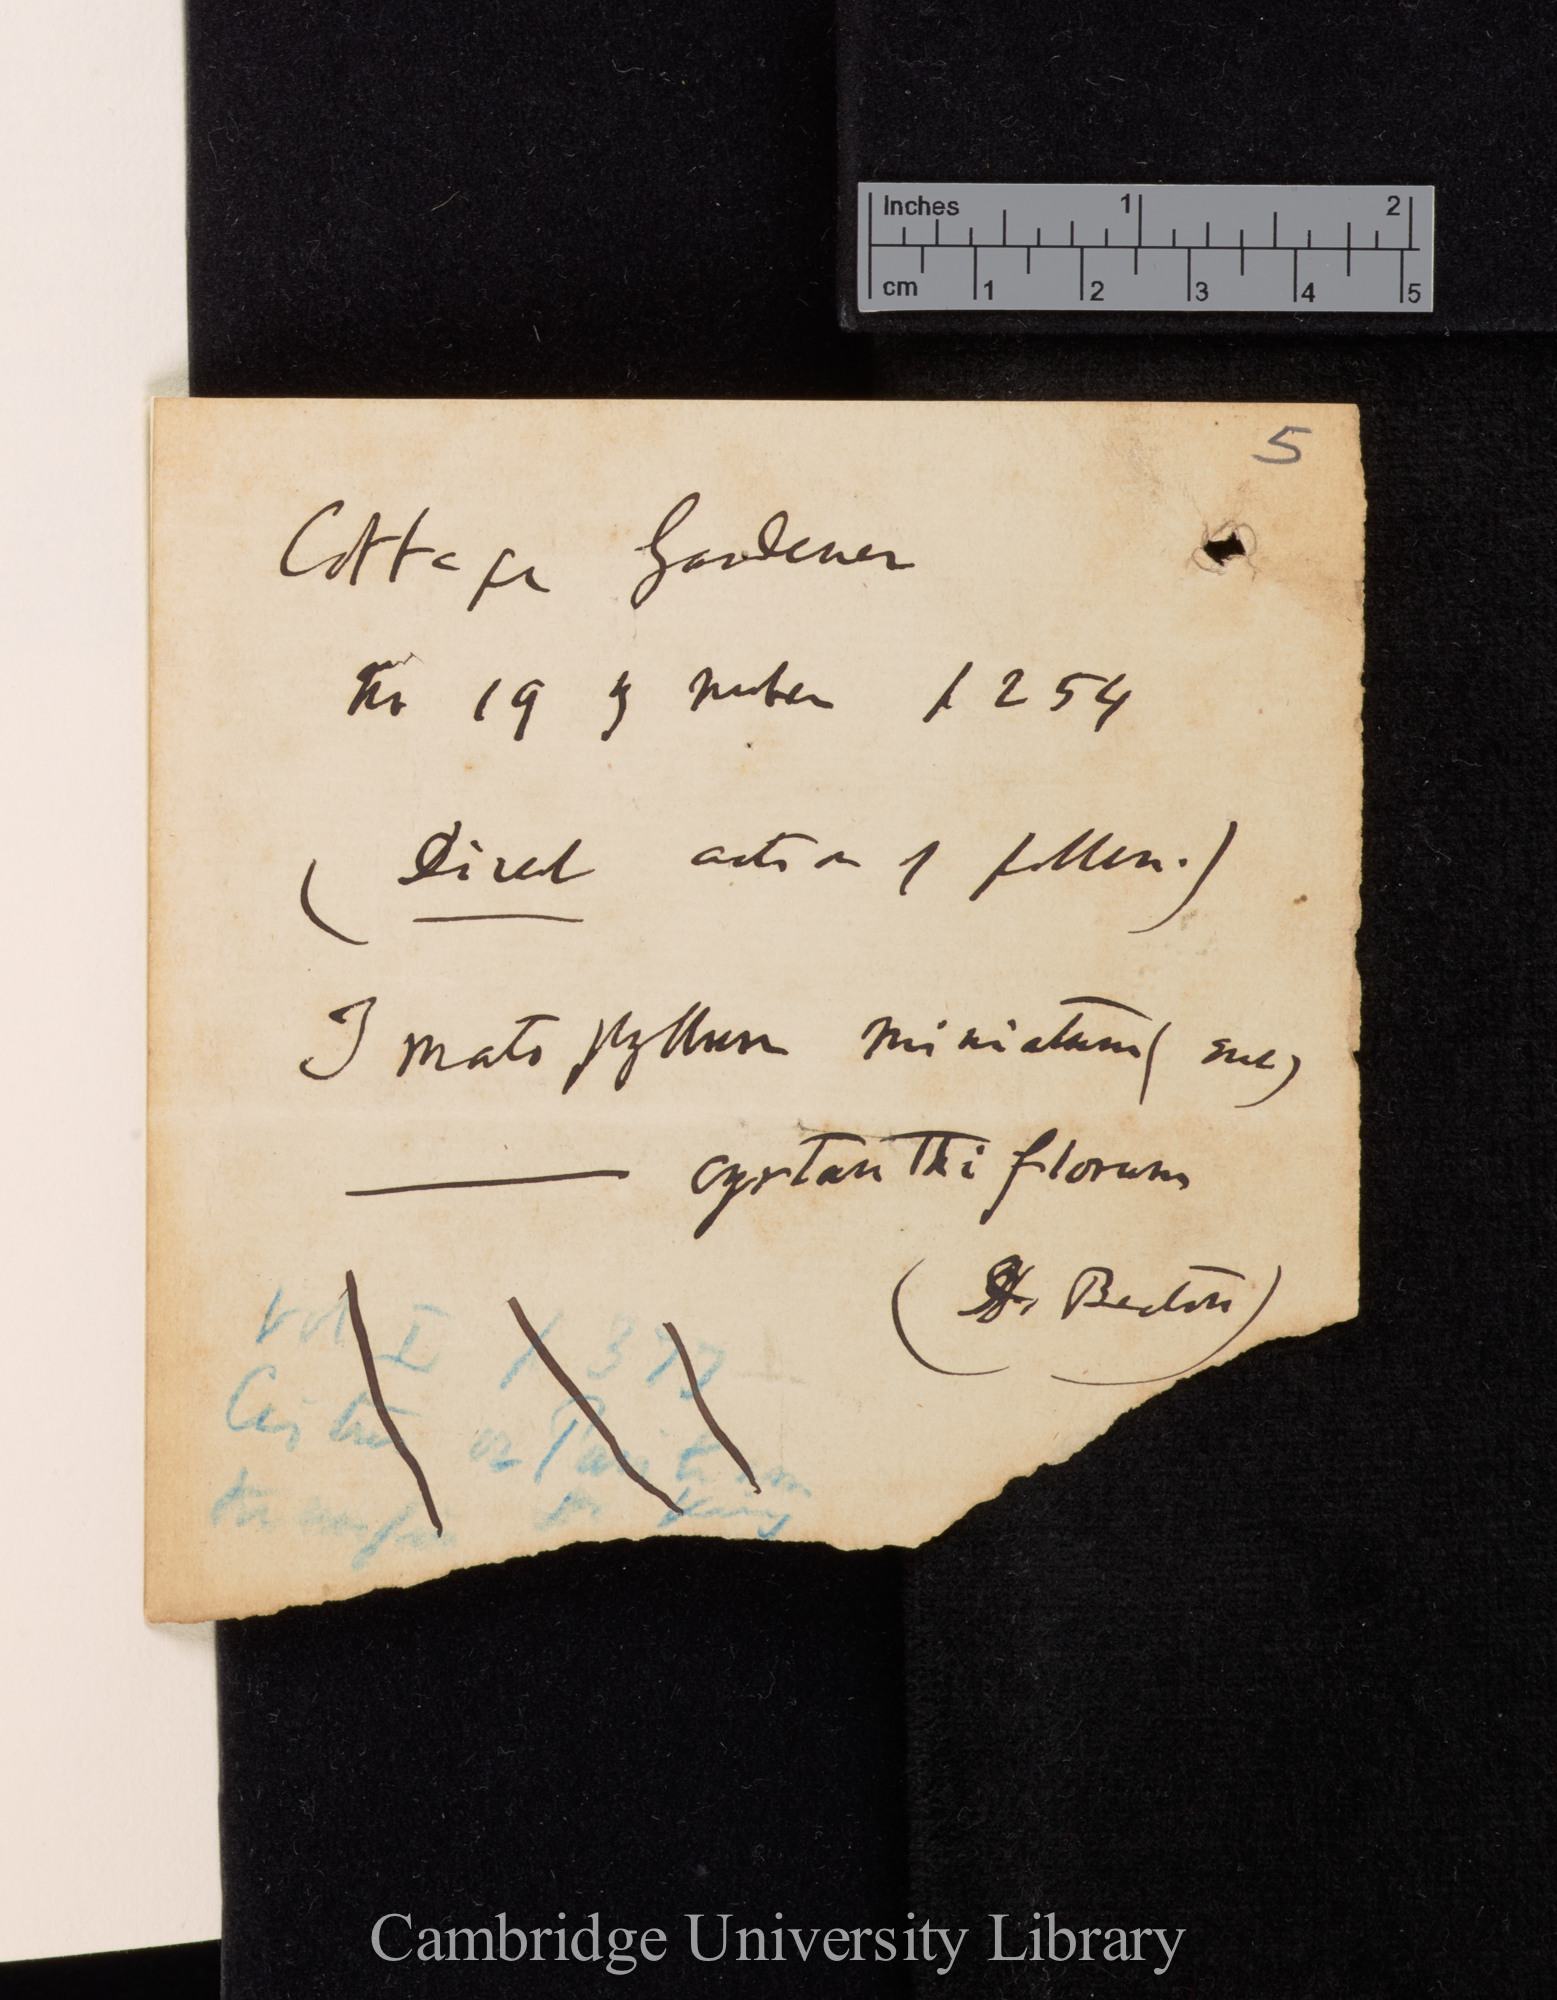 Inches 1 2
cm 1 2 3 4 5
5
Cottage Gardener
19 number p 254
(Direct action of pollen.)
Imatophyllum miniatum (
——— cyrtanthiflorum
(Beaton)
vol I p 377
Cambridge University Library